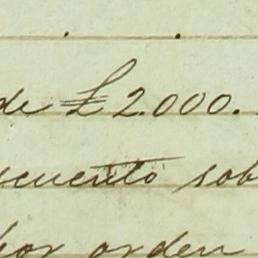 de £2.000.
scuento sob
por orden